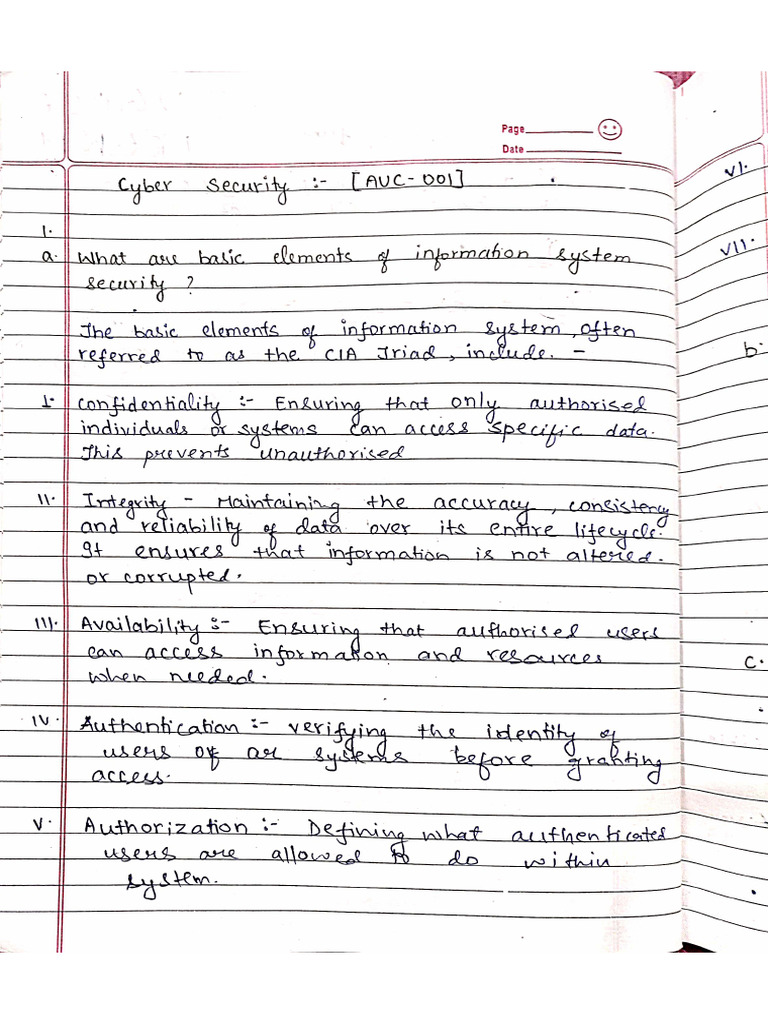 Page
Date
Cyber Security :- [AUC-001]
1.
a. What are basic elements of information system
security ?
The basic elements of information system, often
referred to as the CIA Triad, include. -
I. Confidentiality :- Ensuring that only authorised
individuals or systems can access specific data.
This prevents unauthorised
II. Integrity - Maintaining the accuracy, consistency
and reliability of data over its entire lifecycle.
It ensures that information is not altered.
or corrupted.
III. Availability :- Ensuring that authorised users
can access information and resources
when needed.
IV. Authentication :- verifying the identity of
users or systems before granting
access.
V. Authorization :- Defining what authenticated
users are allowed to do within
system.
VI.
VII.
b.
c.